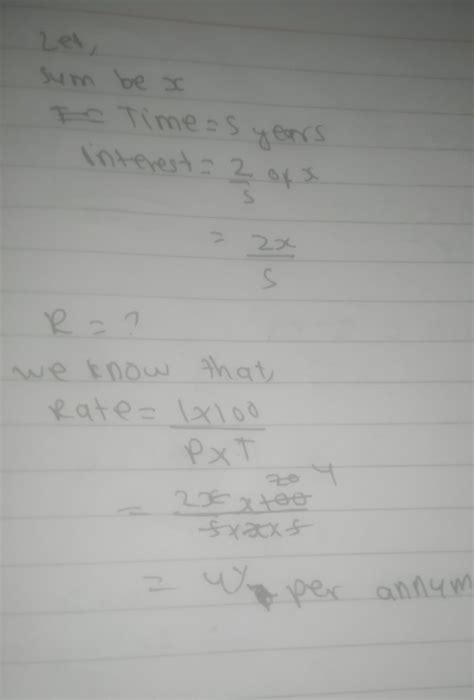 Let,
sum be x
Time = 5 years
interest = 2/5 of x
= 2x/5
R = ?
we know that,
Rate = I x 100
P x T
20 4
= 2x x 100
5 x x x 5
= 4% per annum